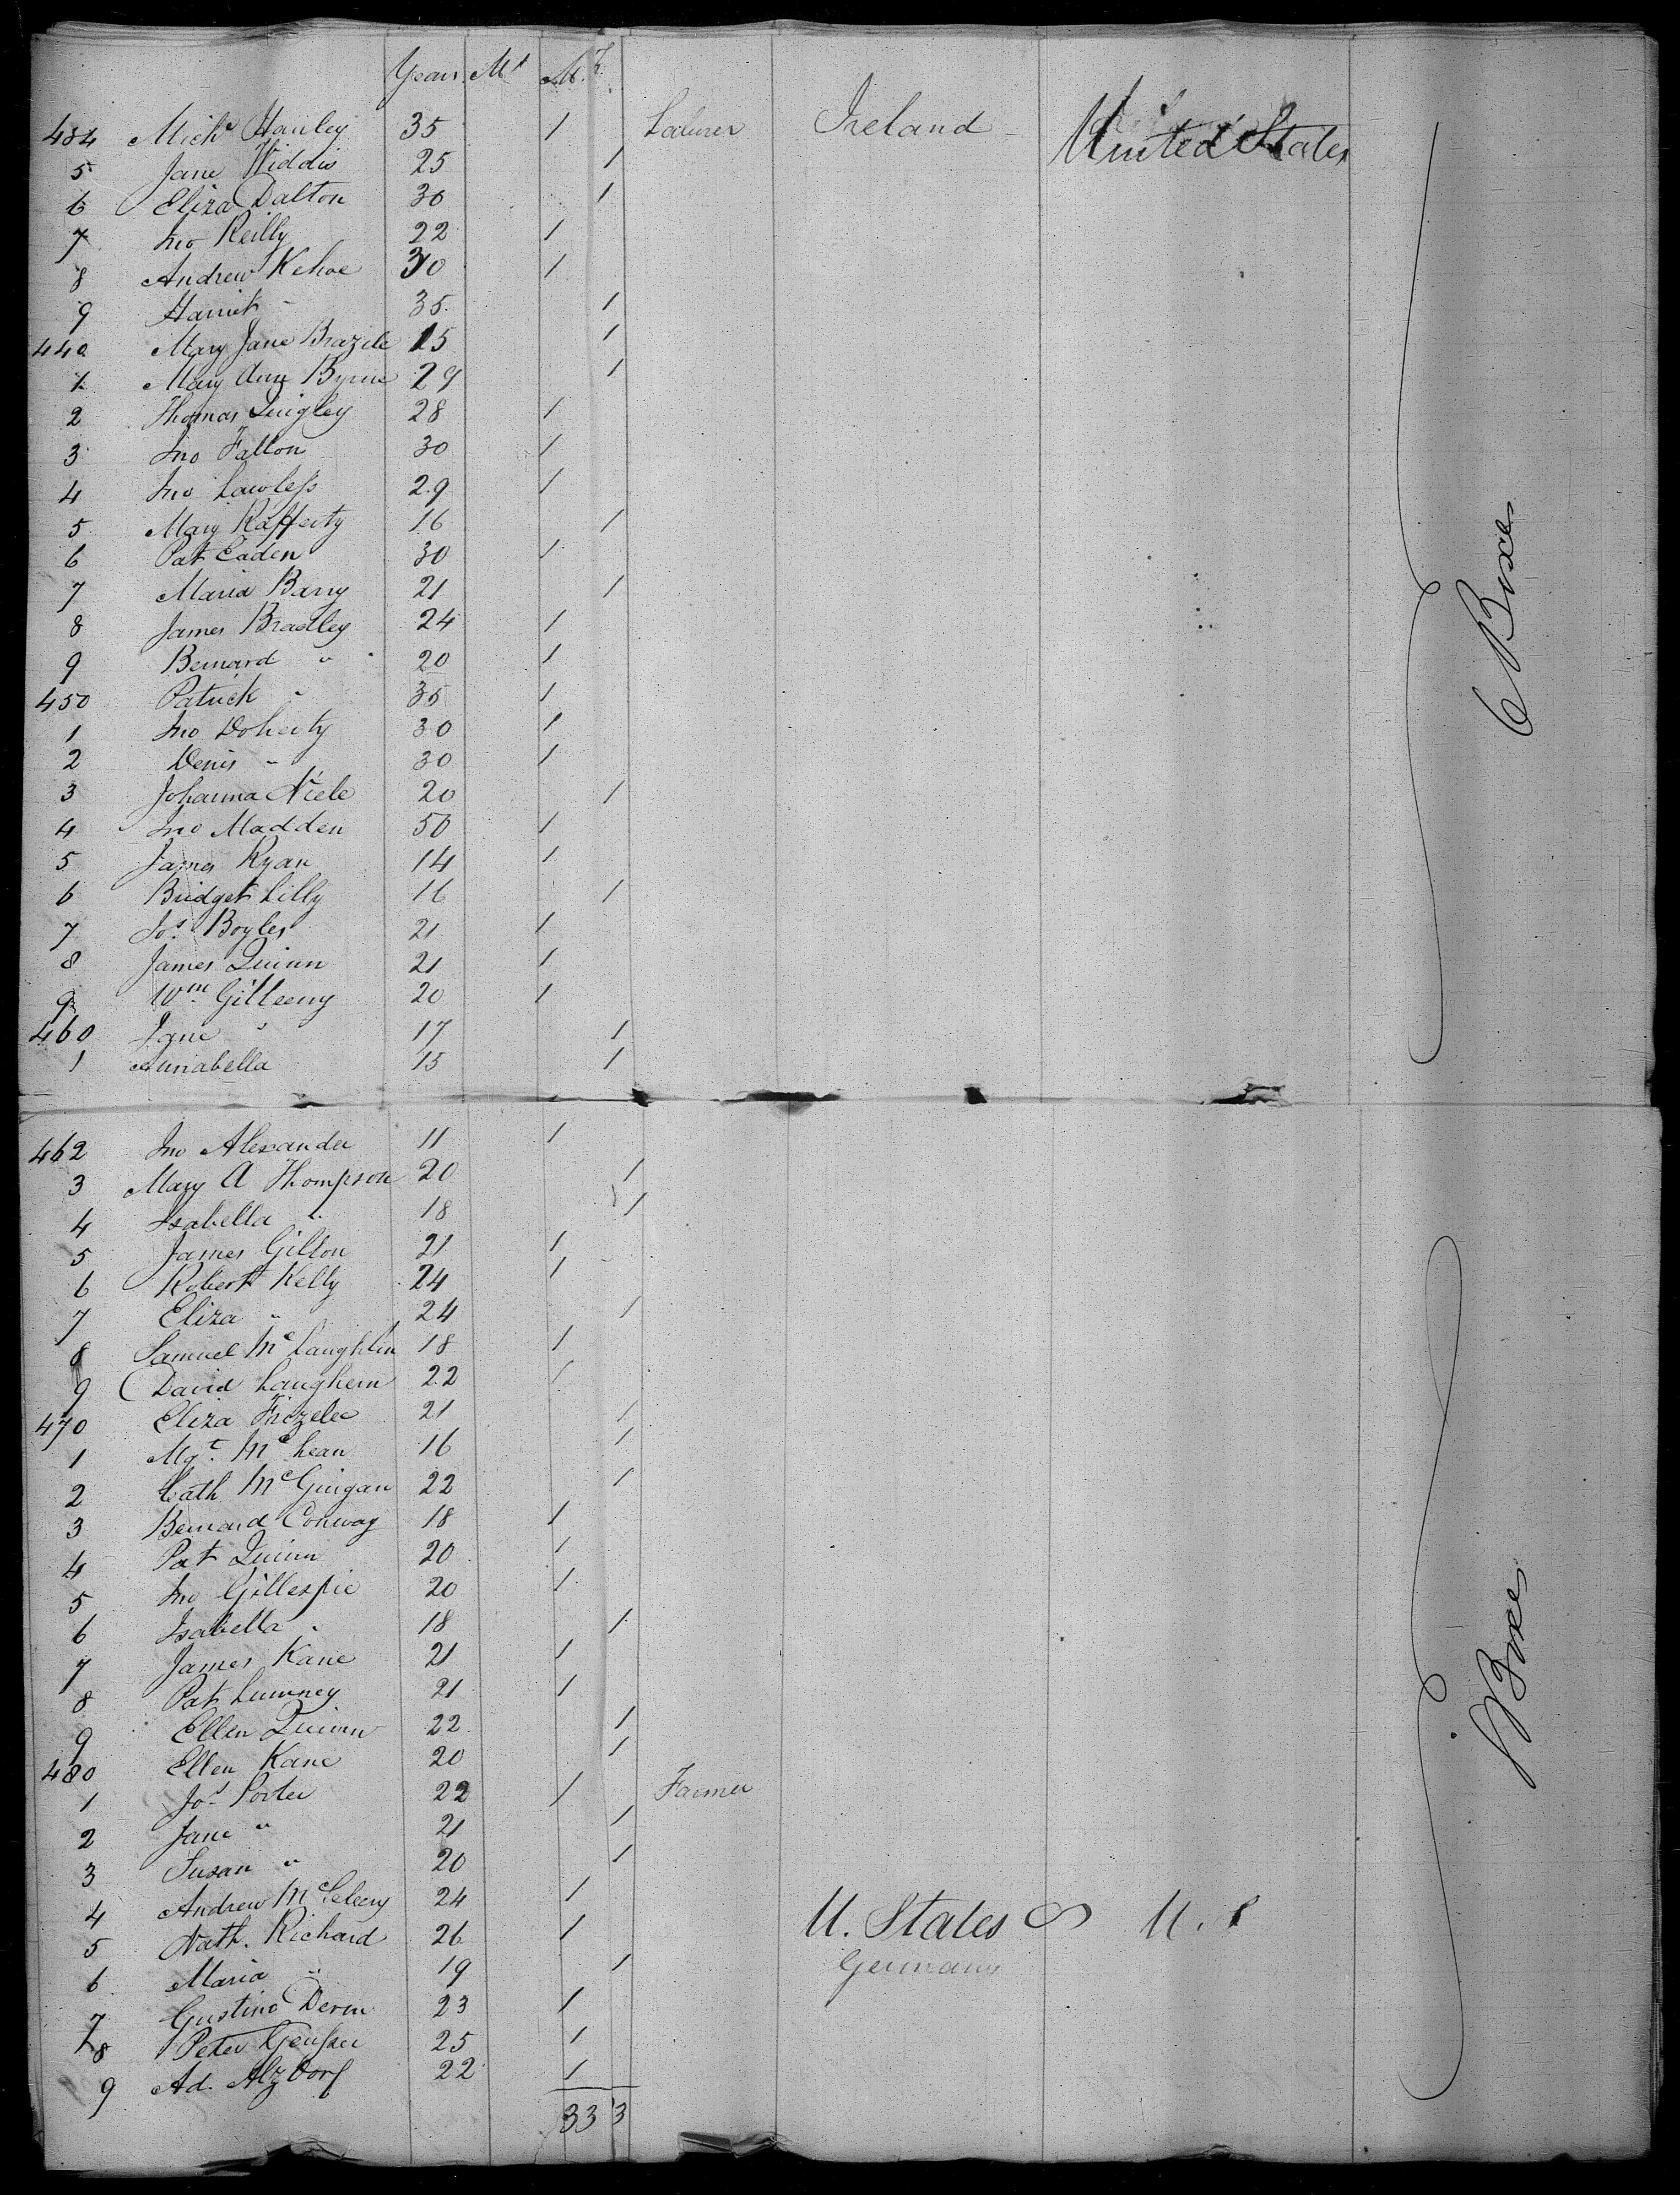 Years Ms M. F.
434 Michl Hanley 35 1 Laborer Ireland United States
5 Jane Widdis 25 1
6 Eliza Dalton 30 1
7 Jno Reilly 22 1
8 Andrew Kehoe 30 1
9 Harriet " 35 1
440 Mary Jane Brazile 15 1
1 Mary Ann Byrne 29 1
2 Thomas Quigley 28 1
3 Jno Fallon 30 1
4 Jno Lawless 29 1
5 Mary Rafferty 16 1
6 Pat Eaden 30 1
7 Maria Barry 21 1
8 James Bradley 24 1
9 Bernard " 20 1
450 Patrick " 35 1
1 Jno Doherty 30 1
2 Denis " 30 1
3 Johanna Niele 20 1
4 Jno Madden 50 1
5 James Ryan 14 1
6 Bridget Lilly 16 1
7 Jos Boyles 21 1
8 James Quinn 21 1
9 Wm Gilleeny 20 1
460 Jane " 17 1
1 Annabella 15 1
6 Boxes
462 Jno Alexander 11 1
3 Mary A Thompson 20 1
4 Isabella " 18 1
5 James Gilton 21 1
6 Robert Kelly 24 1
7 Eliza " 24 1
8 Samuel McLaughlin 18 1
9 David Laughern 22 1
470 Eliza Frizelee 21 1
1 Mgt McLean 16 1
2 Cath McGuigan 22 1
3 Bernard Conway 18 1
4 Pat Quinn 20 1
5 Jno Gillespie 20 1
6 Isabella " 18 1
7 James Kane 21 1
8 Pat Lunney 21 1
9 Ellen Quinn 22 1
480 Ellen Kane 20 1
1 Jos Porter 22 1 Farmer
2 Jane " 21 1
3 Susan " 20 1
4 Andrew McSeleeny 24 1
5 Nath. Richard 26 1 U. States U. S
6 Maria " 19 1 Germany
7 Gustino Derm 23 1
8 Peter 25 1
9 Ad. Alzdorf 22 1
33 3
Boxes